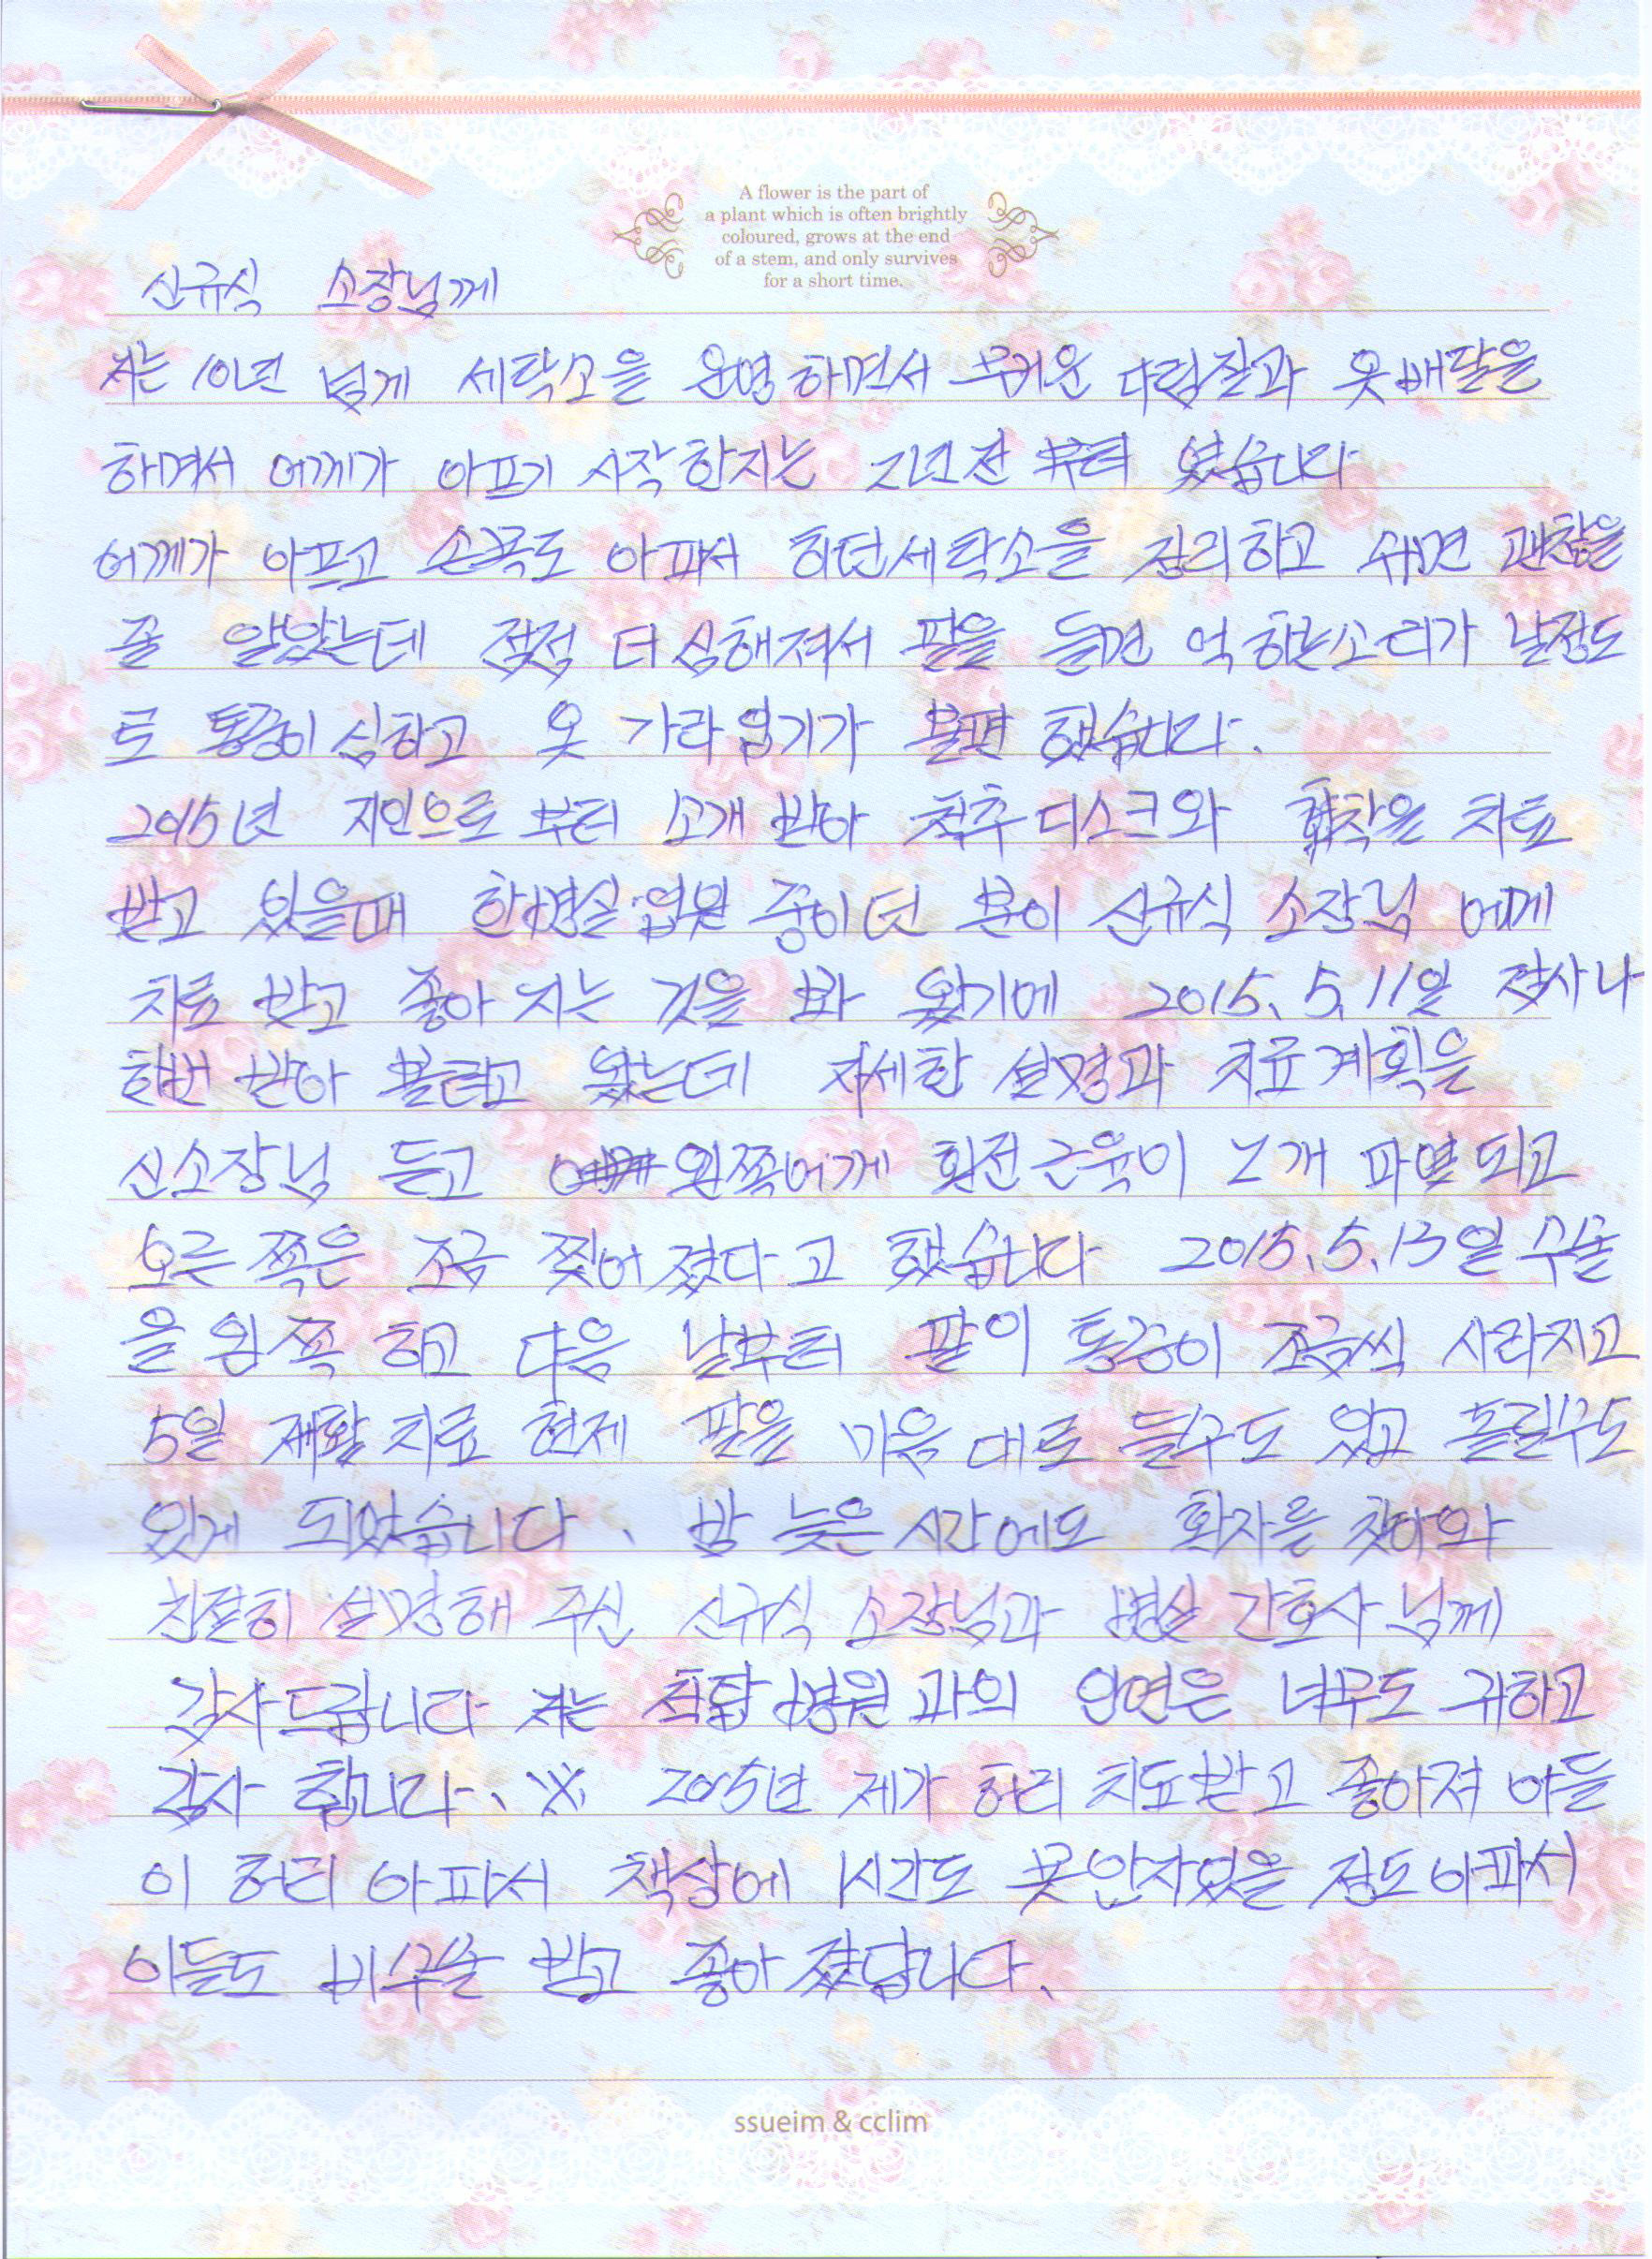 A flower is the part of
a plant which is often brightly
coloured, grows at the end
of a stem, and only survives
for a short time.
신규식 소장님께
저는 10년 넘게 세탁소을 운영하면서 무거운 다림질과 옷배달을
하며서 어깨가 아프기 시작한지는 2년전 부터 였습니다
어깨가 아프고 손목도 아파서 하던세탁소을 정리하고 쉬면 괜찮을
줄 알았는데 점점 더 심해져서 팔을 들면 억 하는소리가 날정도
로 통증이 심하고 옷 가라입기가 불편 했습니다.
2015년 지인으로 부터 소개 받아 척추 디스크와 협착을 치료
받고 있을때 한병실 입원 중이던 분이 신규식 소장님 에게
치료 받고 좋아 지는 것을 봐 왔기에 2015. 5. 11일 검사나
한번 받아 볼려고 왔는데 자세한 설명과 치료계획을
신소장님 듣고 왼쪽어께 회전근육이 2개 파열되고
오른쪽은 조금 찢어졌다고 했습니다 2015.5.13일 수술
을 왼쪽 하고 다음 날부터 팔이 통증이 조금씩 사라지고
5일 재활치료 현제 팔을 마음 대로 들수도 있고 흔들수도
있게 되었습니다. 밤 늦은 시간에도 환자를 찾아와
친절히 설명해 주신 신규식 소장님과 병실 간호사님께
감사드립니다 저는 척탑병원과의 인연은 너무도 귀하고
감사 합니다. ※ 2005년 제가 허리 치료받고 좋아져 아들
이 허리 아파서 책상에 1시간도 못안자있을 정도 아파서
아들도 비수술 받고 좋아 졌답니다.
ssueim & cclim